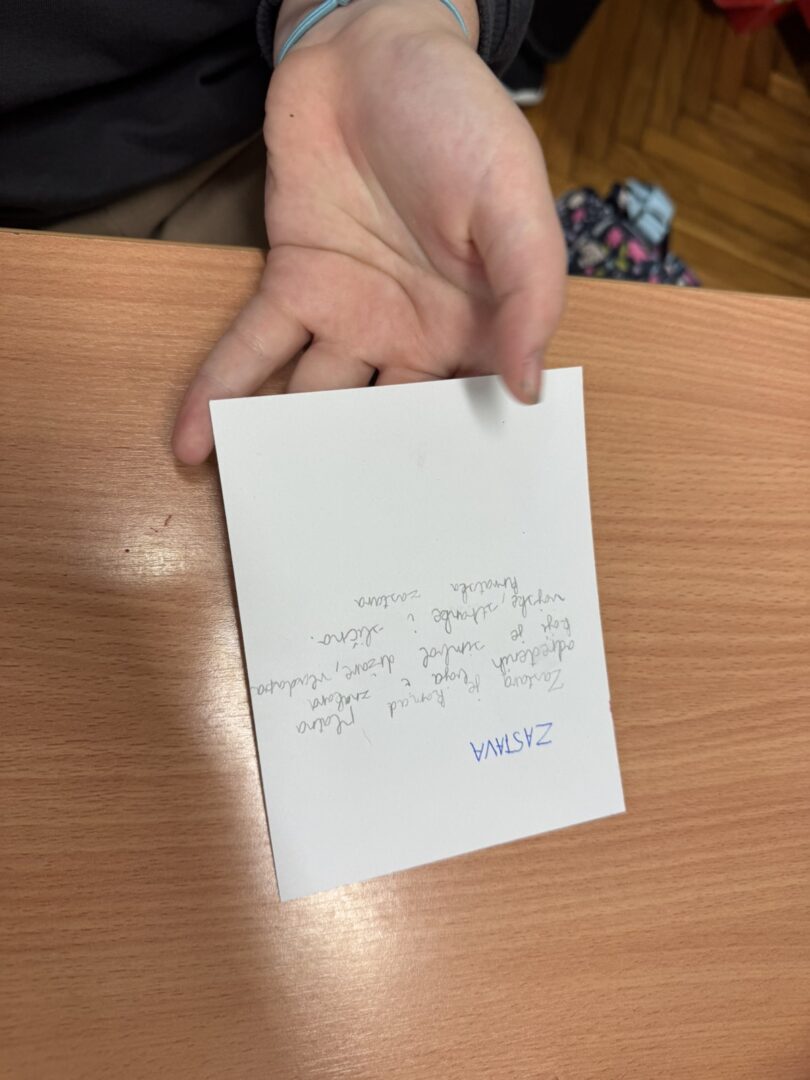 ZASTAVA
Zastava je komad platna
određenih boja i znakova
koji je simbol države, vladara
vojske, stranke i slično.
hrvatska zastava